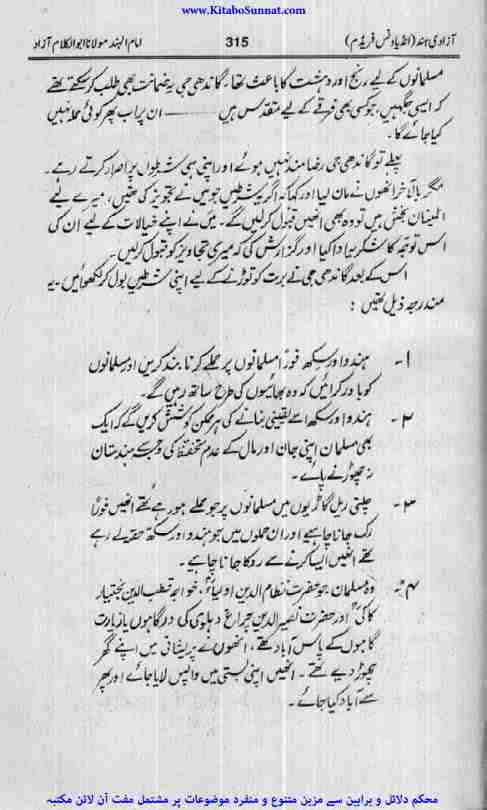 www.KitaboSunnat.com
آزادی ہند (انڈیا ونس فریڈم) 315 امام الہند مولانا ابوالکلام آزاد
مسلمانوں کے لیے رنج اور دہشت کا باعث تھا۔ گاندھی جی یہ ضمانت بھی طلب کر سکتے تھے
کہ ایسی جگہیں، جو کسی بھی فرقے کے لیے مقدس ہیں ——— ان پر اب پھر کوئی حملہ نہیں
کیا جائے گا۔
پہلے تو گاندھی جی رضامند نہیں ہوئے اور اپنی ہی شرطوں پر اصرار کرتے رہے۔
مگر بالآخر انھوں نے مان لیا اور کہا کہ اگر یہ شرطیں جو میں نے تجویز کی تھیں، میرے لیے
اطمینان بخش ہیں تو وہ بھی انھیں قبول کرلیں گے۔ میں نے اپنے خیالات کے لیے ان کی
اس توجہ کا شکریہ ادا کیا اور گزارش کی کہ میری تجاویز کو قبول کرلیں۔
اس کے بعد گاندھی جی نے برت کو توڑنے کے لیے اپنی شرطیں بول کر لکھوائیں۔ یہ
مندرجہ ذیل تھیں :
۱- ہندو اور سکھ فوراً مسلمانوں پر حملے کرنا بند کریں اور مسلمانوں
کو باور کرائیں کہ وہ بھائیوں کی طرح ساتھ رہیں گے۔
۲- ہندو اور سکھ اسے یقینی بنانے کی ہر ممکن کوشش کریں گے کہ ایک
بھی مسلمان اپنی جان اور مال کے عدم تحفظ کی وجہ سے ہندستان
نہ چھوڑنے پائے۔
۳- چلتی ریل گاڑیوں میں مسلمانوں پر جو حملے ہورہے تھے انھیں فوراً
رک جانا چاہیے اور ان حملوں میں جو ہندو اور سکھ حصہ لے رہے
تھے انھیں ایسا کرنے سے روکا جانا چاہیے۔
۴- وہ مسلمان جو حضرت نظام الدین اولیاؒ، خواجہ قطب الدین بختیار
کاکیؒ اور حضرت نصیر الدین چراغ دہلوی کی درگاہوں یا زیارت
گاہوں کے پاس آباد تھے، انھوں نے پریشانی میں اپنے گھر
چھوڑ دیے تھے۔ انھیں اپنی بستی میں واپس لایا جائے اور پھر
سے آباد کیا جائے۔
محکم دلائل و براہین سے مزین متنوع و منفرد موضوعات پر مشتمل مفت آن لائن مکتبہ